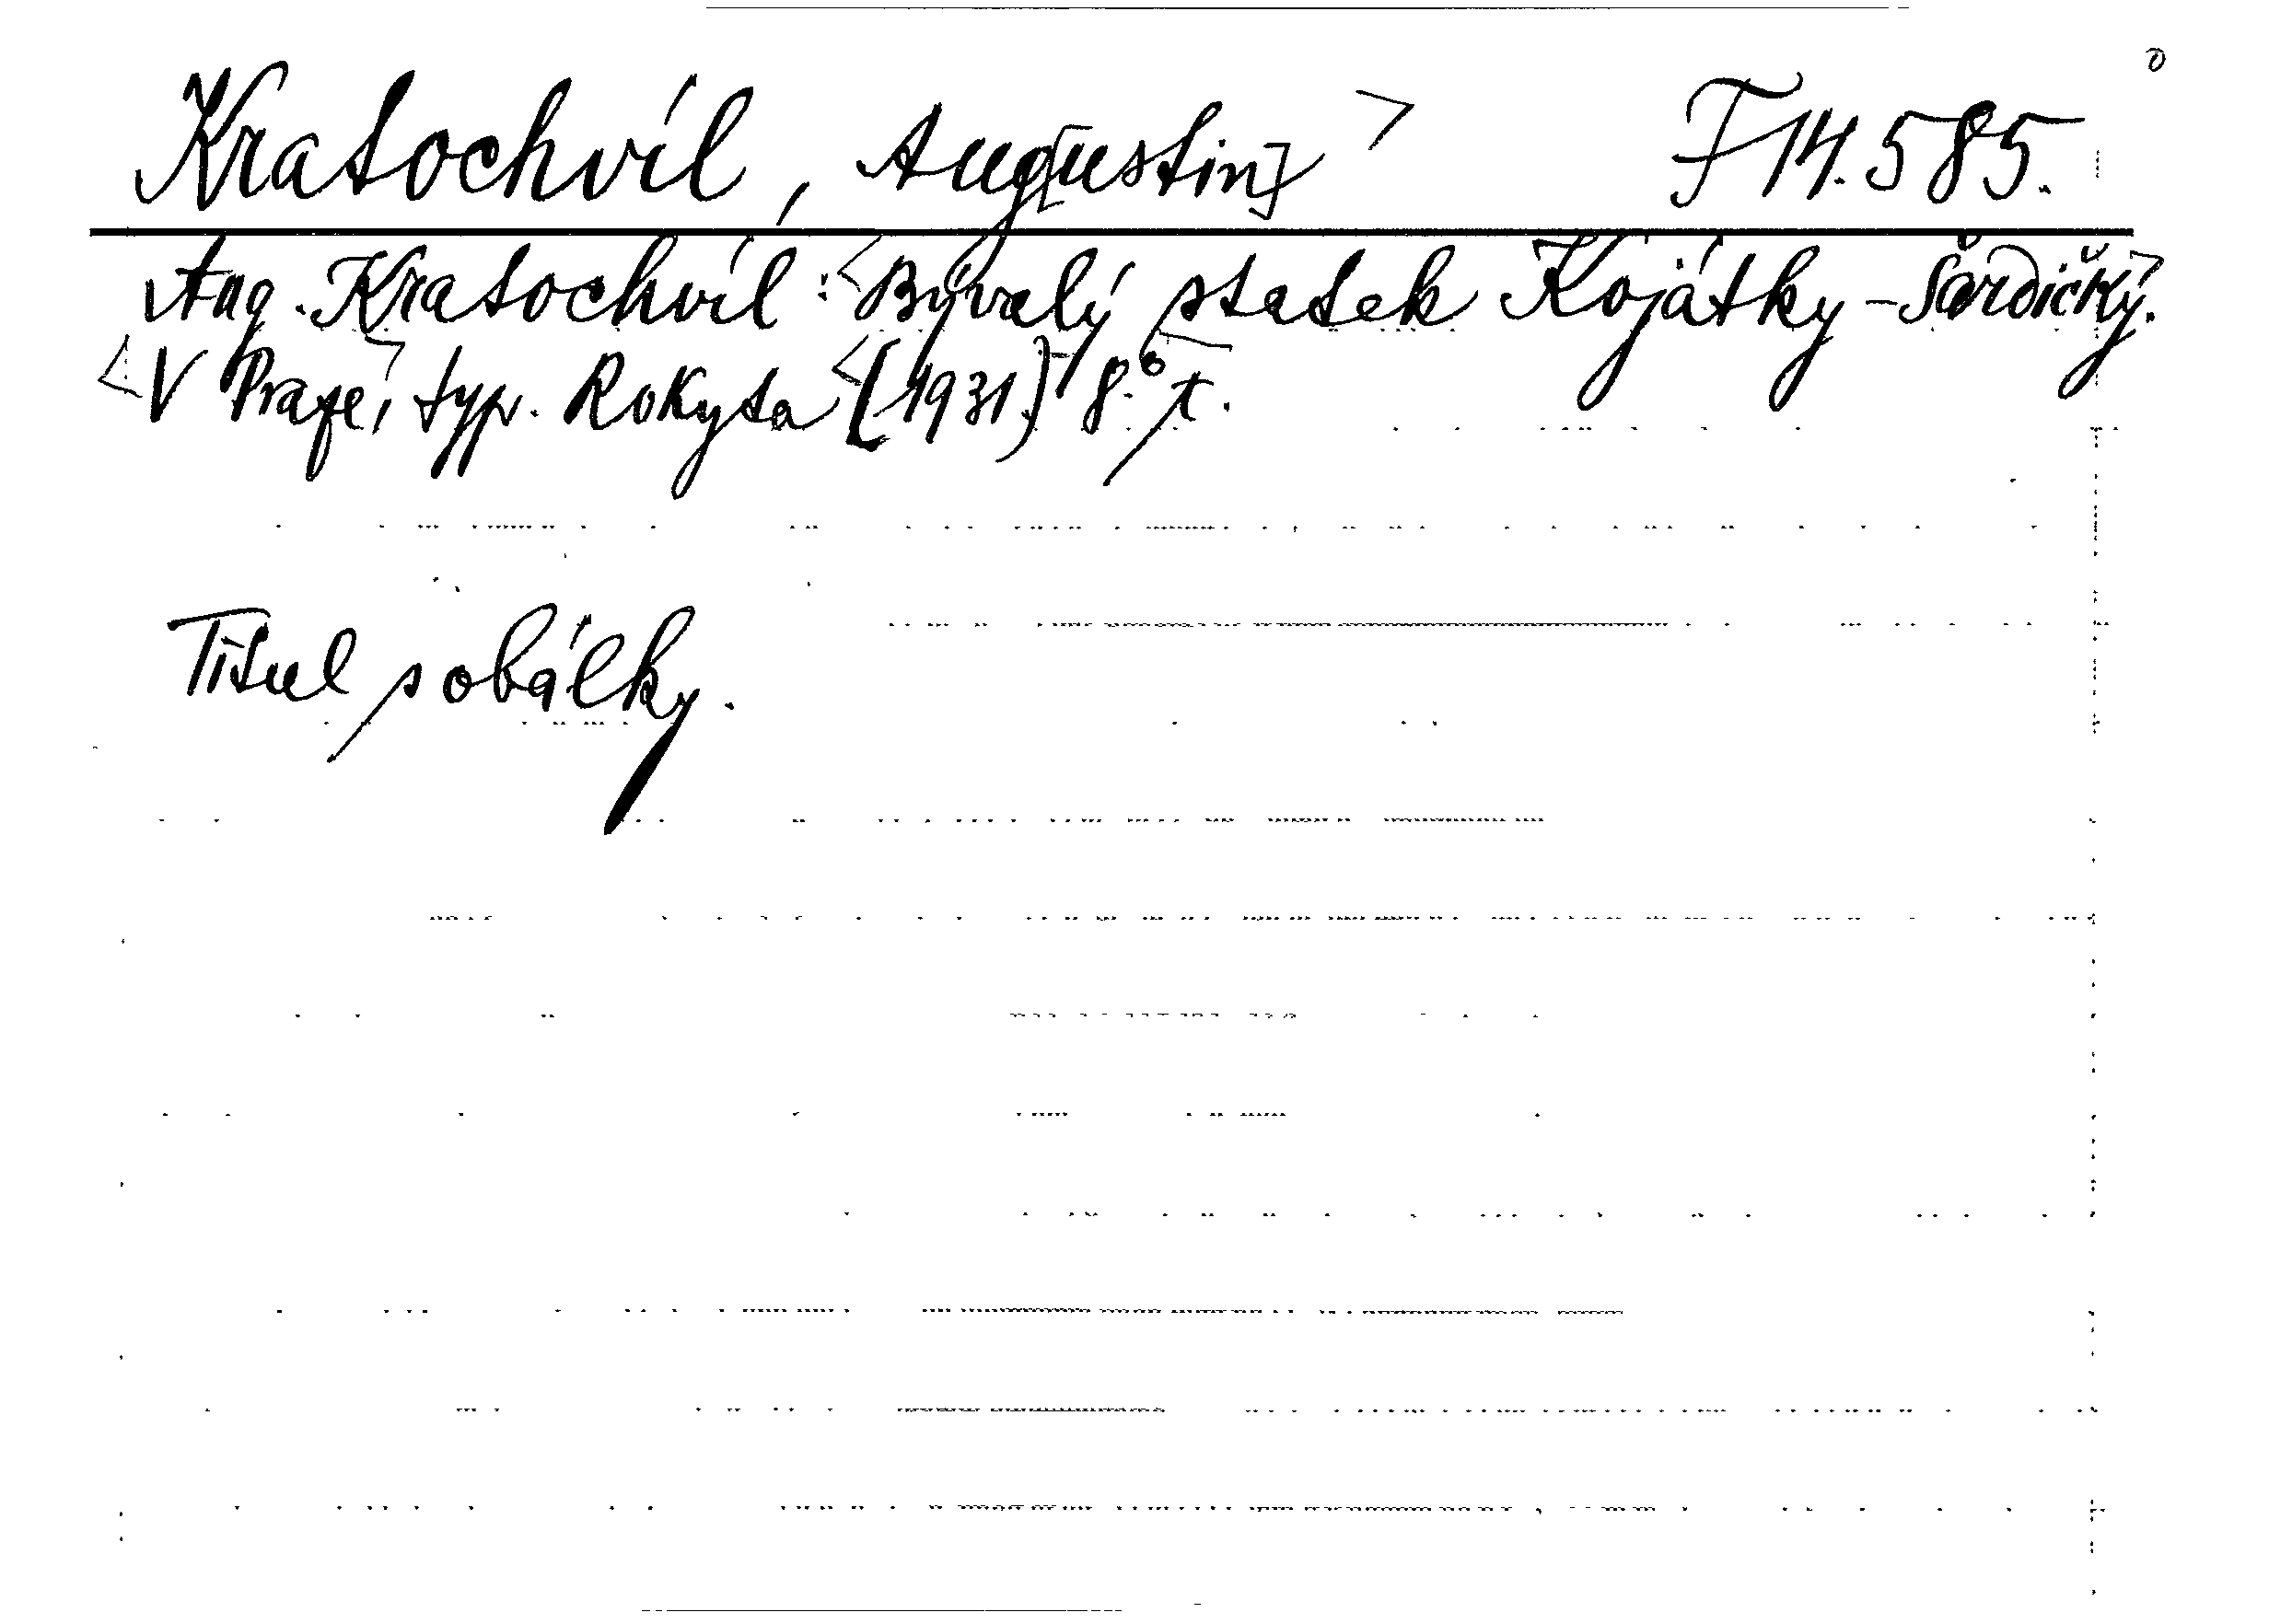 Kratochvíl, Aug[ustin] F 14.585.
Aug. Kratochvíl: Bývalý statek Kojátky-Šardičky.
V Praze, typ. Rokyta [1931.] 8.° t.
Titul s obálky.